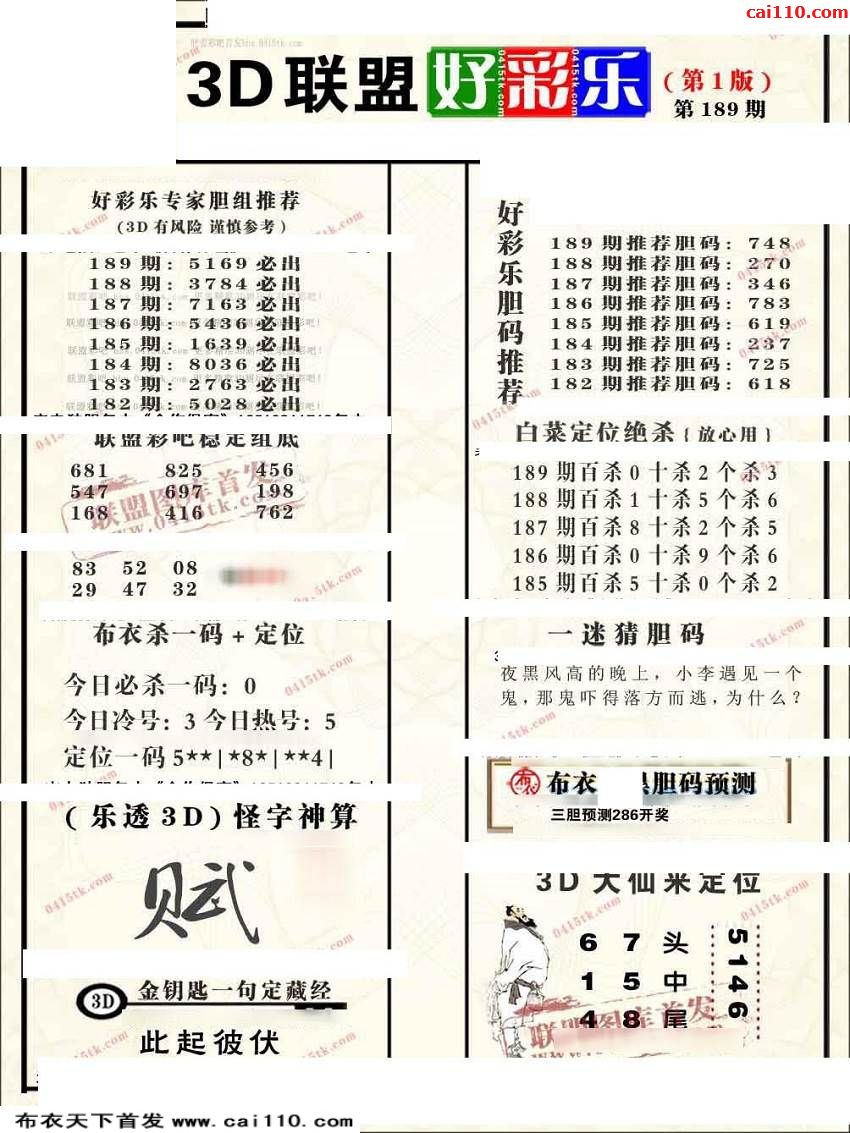 cai110.com
3D联盟好彩乐
(第1版)
第189期
好彩乐专家胆组推荐
(3D有风险 谨慎参考)
189期: 5169必出
188期: 3784必出
187期: 7163必出
186期: 5436必出
185期: 1639必出
184期: 8036必出
183期: 2763必出
182期: 5028必出
联盟彩吧稳定组底
681 825 456
547 697 198
168 416 762
83 52 08
29 47 32
布衣杀一码+定位
今日必杀一码: 0
今日冷号: 3 今日热号: 5
定位一码 5**|*8*|**4|
(乐透3D)怪字神算
赋
3D 金钥匙一句定藏经
此起彼伏
好彩乐胆码推荐
189期推荐胆码: 748
188期推荐胆码: 270
187期推荐胆码: 346
186期推荐胆码: 783
185期推荐胆码: 619
184期推荐胆码: 237
183期推荐胆码: 725
182期推荐胆码: 618
白菜定位绝杀{放心用}
189期百杀0十杀2个杀3
188期百杀1十杀5个杀6
187期百杀8十杀2个杀5
186期百杀0十杀9个杀6
185期百杀5十杀0个杀2
一迷猜胆码
夜黑风高的晚上, 小李遇见一个
鬼, 那鬼吓得落方而逃, 为什么?
布衣 胆码预测
三胆预测286开奖
3D大仙来定位
6 7 头
1 5 中
4 8 尾
5146
联盟图库首发
www.0415tk.com
0415tk.com
布衣天下首发 www.cai110.com